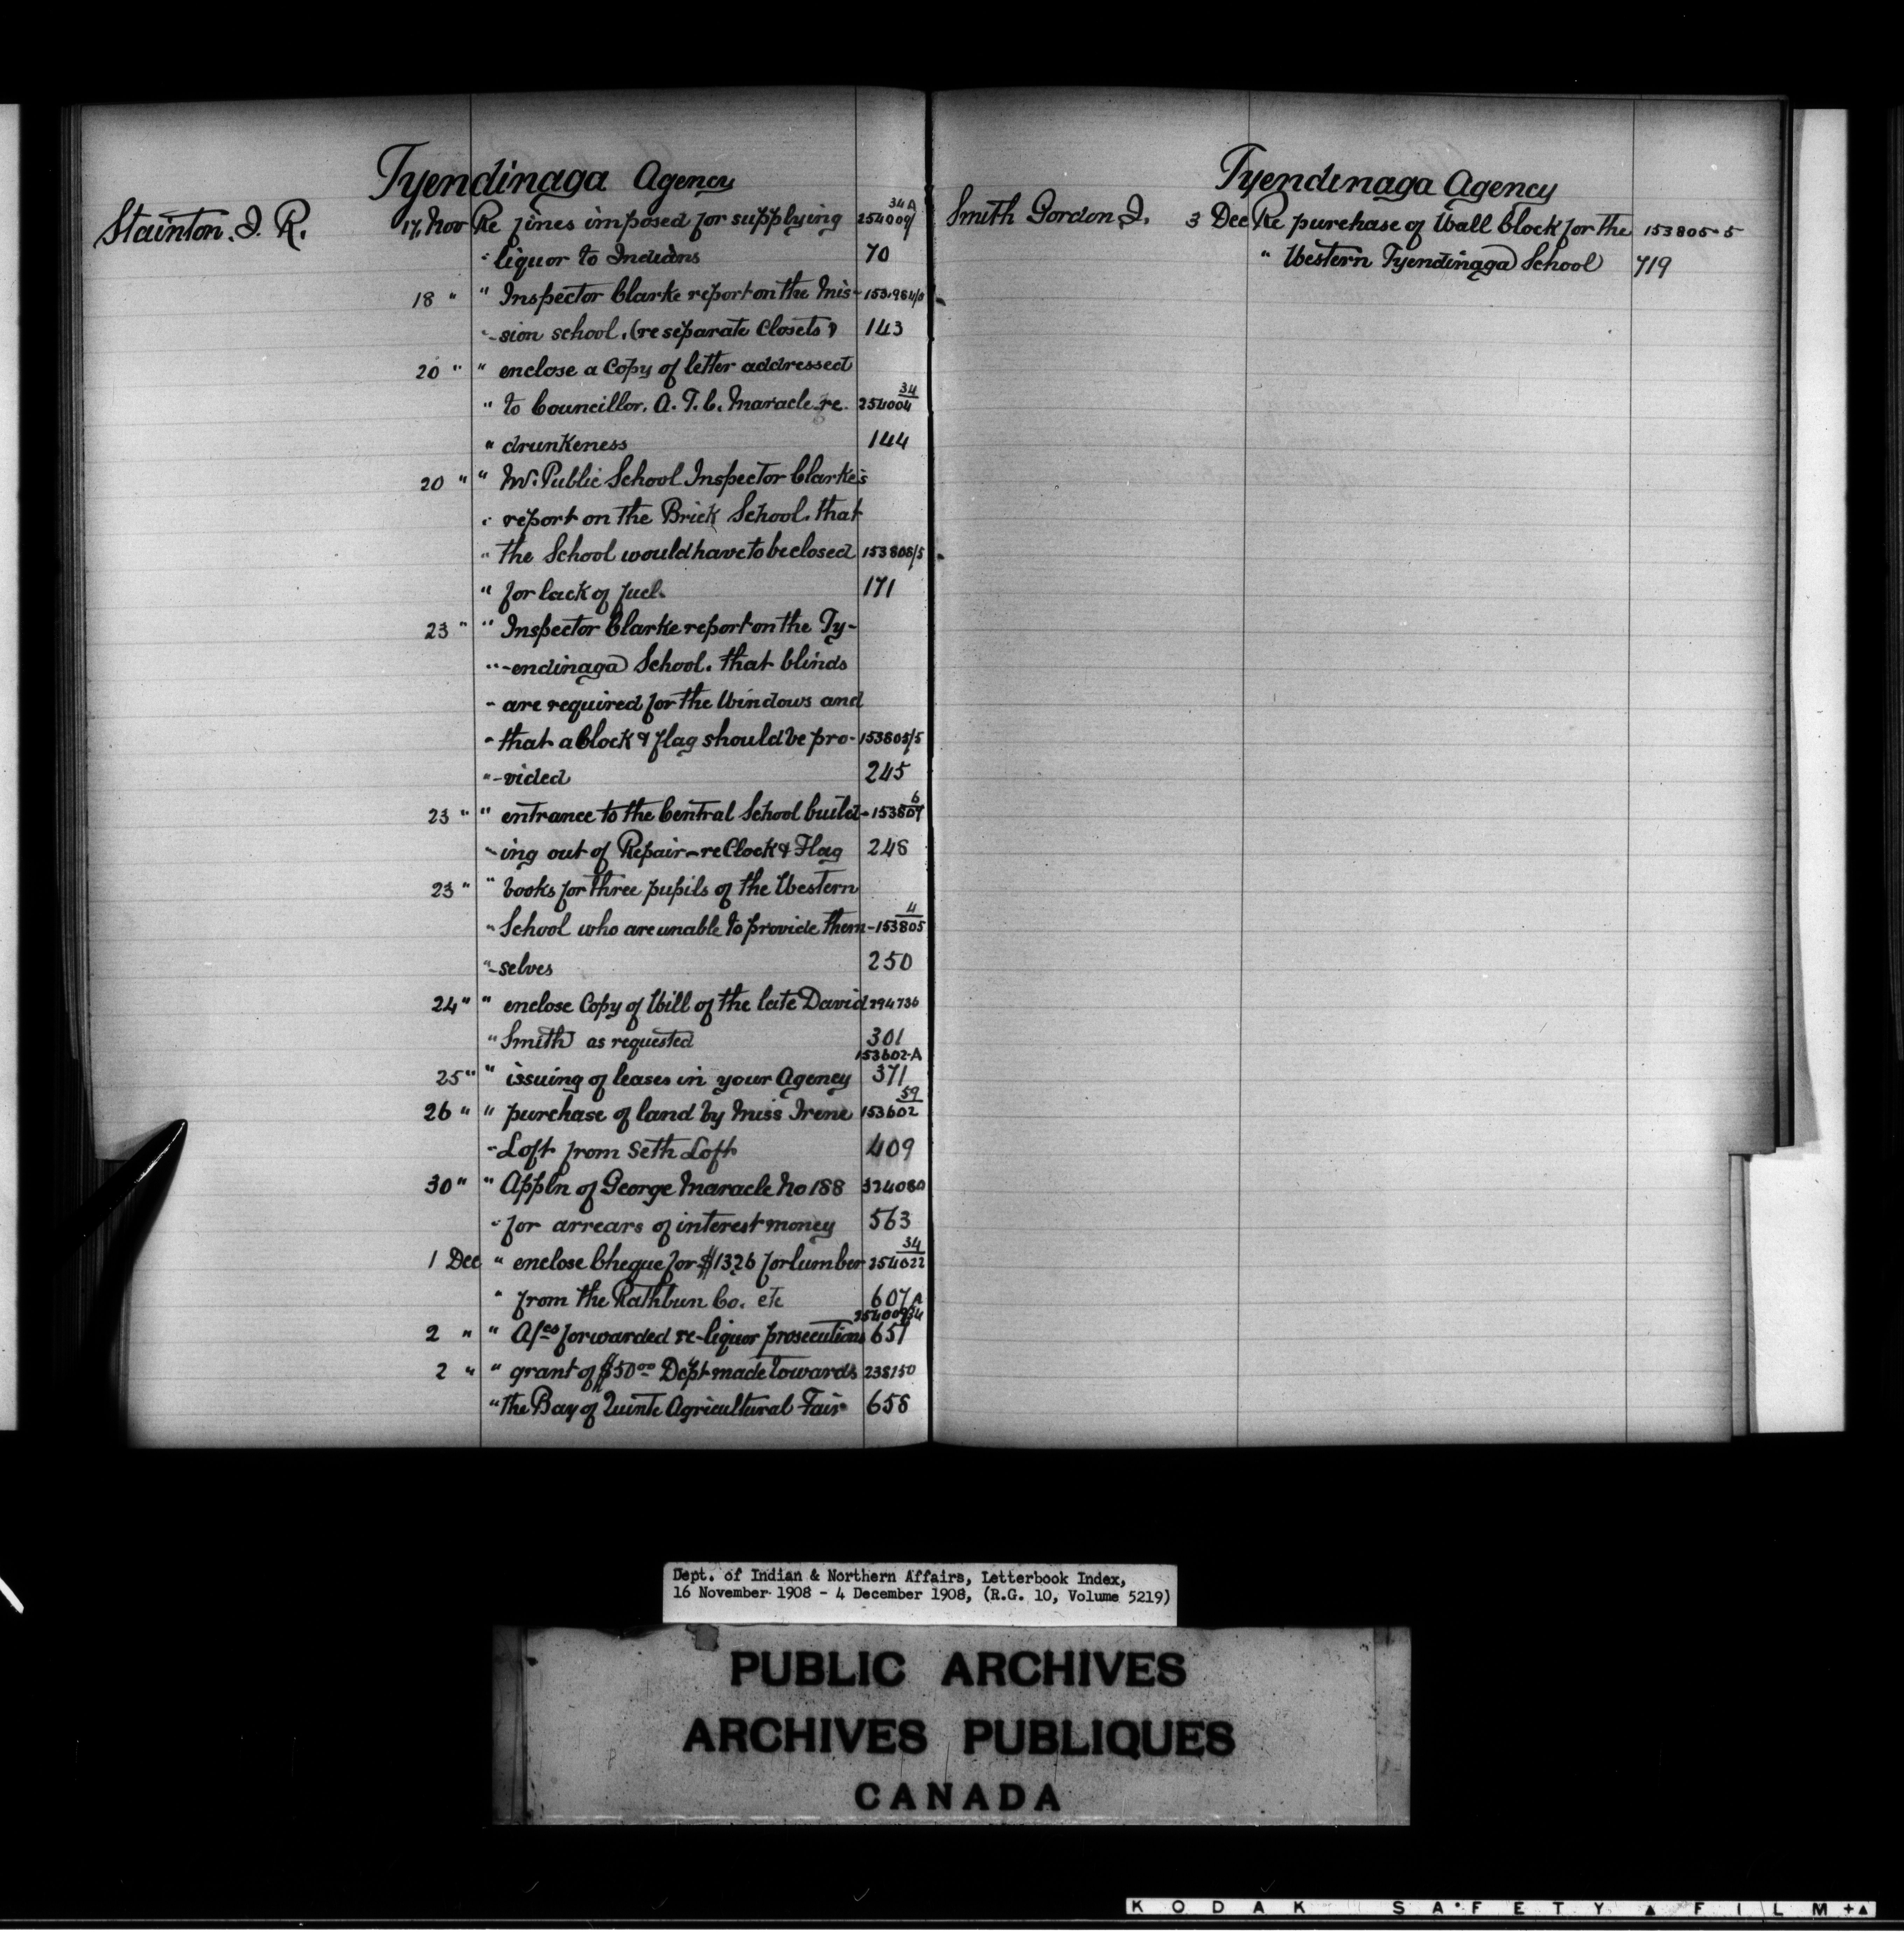 Tyendinaga Agency
34A
Stainton. J. R. 17, Nov Re fines imposed for supplying 254009/
" liquor to Indians 70
18 " " Inspector Clarke report on the Mis- 153,964/8
"-sion school. (re separate Closets) 143
20 " " enclose a Copy of letter addressed
34
" to Councillor. A. T. C. Maracle re. 254004
" drunkeness 144
20 " " Mr. Public School Inspector Clarke's
" report on the Brick School. that
" the School would have to be closed 153808/5
" for lack of fuel. 171
23 " " Inspector Clarke report on the Ty-
"-endinaga School. that blinds
" are required for the Windows and
" that a Clock & flag should be pro- 153805/5
"-vided 245
6
23 " " entrance to the Central School build- 153807
"-ing out of Repair - re Clock & Flag 248
23 " " books for three pupils of the Western
4
" School who are unable to provide them- 153805
"-selves 250
24 " " enclose Copy of Will of the late David 294736
" Smith as requested 301
153602-A
25 " " issuing of leases in your Agency 371
59
26 " " purchase of land by Miss Irene 153602
" Loft from Seth Loft 409
30 " " Appln of George Maracle No 188 324080
" for arrears of interest money 563
34
1 Dec " enclose Cheque for $1326 for lumber 254022
" from the Rathbun Co. etc 607
254009/34 A
2 " " A/cs forwarded re-liquor prosecutions 657
2 " " grant of $50.00 Dept made towards 238150
" the Bay of Quinte Agricultural Fair 658
Tyendinaga Agency
Smith Gordon J. 3 Dec Re purchase of Wall Clock for the 153805-5
" Western Tyendinaga School 719
Dept. of Indian & Northern Affairs, Letterbook Index,
16 November 1908 - 4 December 1908, (R.G. 10, Volume 5219)
PUBLIC ARCHIVES
ARCHIVES PUBLIQUES
CANADA
KODAK SAFETY ▲ FILM +▲